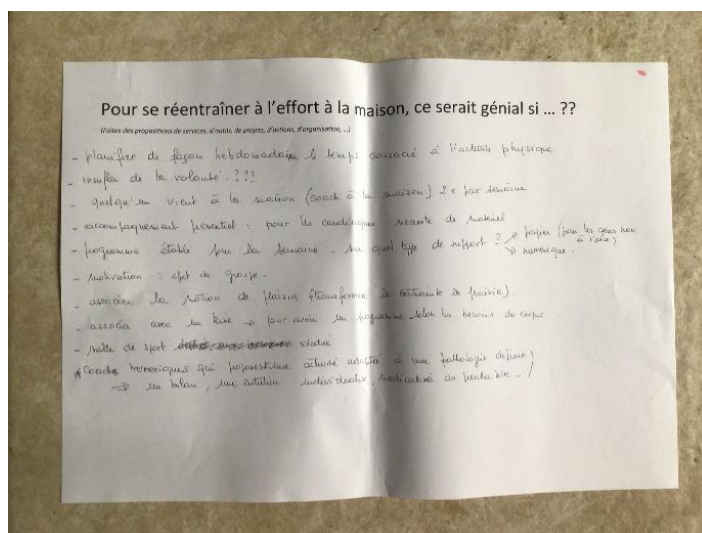 Pour se réentraîner à l'effort à la maison, ce serait génial si ... ??
(Faites des propositions de services, d'outils, de projets, d'actions, d'organisation, ...)
- planifier de façon hebdomadaire le temps consacré à l'activité physique
- insuffler de la volonté. ???
- quelqu'un vient à la maison (coach à la maison) 2x par semaine
- accompagnement présentiel : pour les cardiaques : séance de matériel
- programme établi pour la semaine - sur quel type de support ? → papier (pour les gens non à l'aise)
→ numérique.
- motivation : effet de groupe.
- associer la notion de plaisir (transformer la contrainte en plaisir).
- associer avec un kiné → pour avoir un programme selon les besoins du corps
- salle de sport
* coachs numériques qui proposent une activité adaptée à une pathologie définie
→ un bilan, une individuelle, médicalisé au préalable -